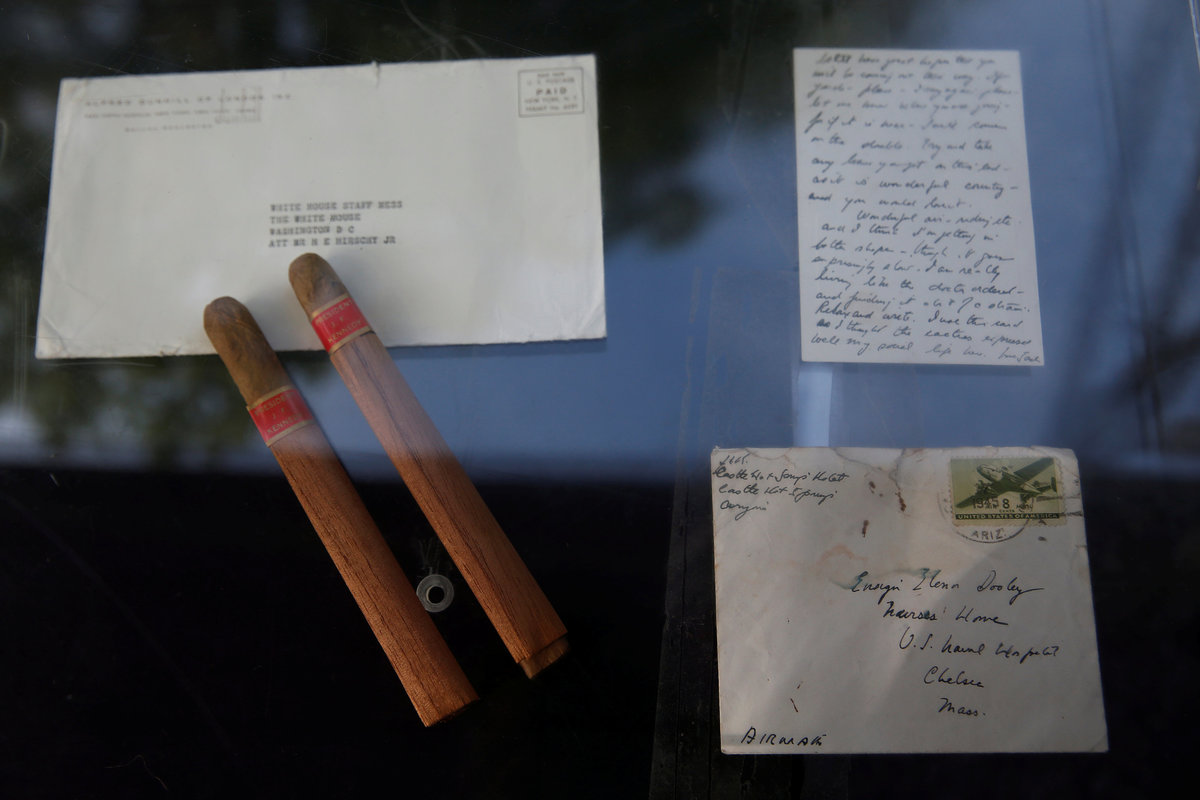 ALFRED DUNHILL OF LONDON INC
U. S. POSTAGE
PAID
NEW YORK, N. Y.
WHITE HOUSE STAFF MESS
THE WHITE HOUSE
WASHINGTON D C
ATT MR H E HIRSCHY JR
PRESIDENT
KENNEDY
PRESIDENT
J. F.
KENNEDY
have great hopes that you
will be coming out this way.
plans
let me know when you are
for if it is
on the double. Try and take
any leave you get on this
as it is wonderful country -
and you would love it.
Wonderful air - riding etc.
and I think I'm getting in
better shape - though it goes
surprisingly slow. I am really
living like the doctor ordered -
and finding it a bit of a strain.
Relax and write. I use this card
as I thought the cactus expressed
well my social life here. Love Jack
Castle Hot Springs Hotel
Castle Hot Springs
8
CENTS
UNITED STATES OF AMERICA
ARIZ.
Ensign Elenor Dooley
Nurses' Home
U.S. Naval Hospital
Chelsea
Mass.
AIRMAIL